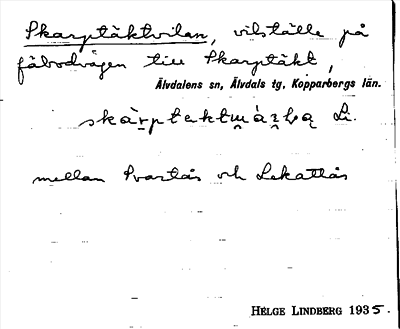 Skarptäktvilan, vilställe på
fäbodvägen till Skarptäkt,
Älvdalens sn, Älvdals tg, Kopparbergs län.
Li.
mellan Svartås och Lekattås
HELGE LINDBERG 1935.